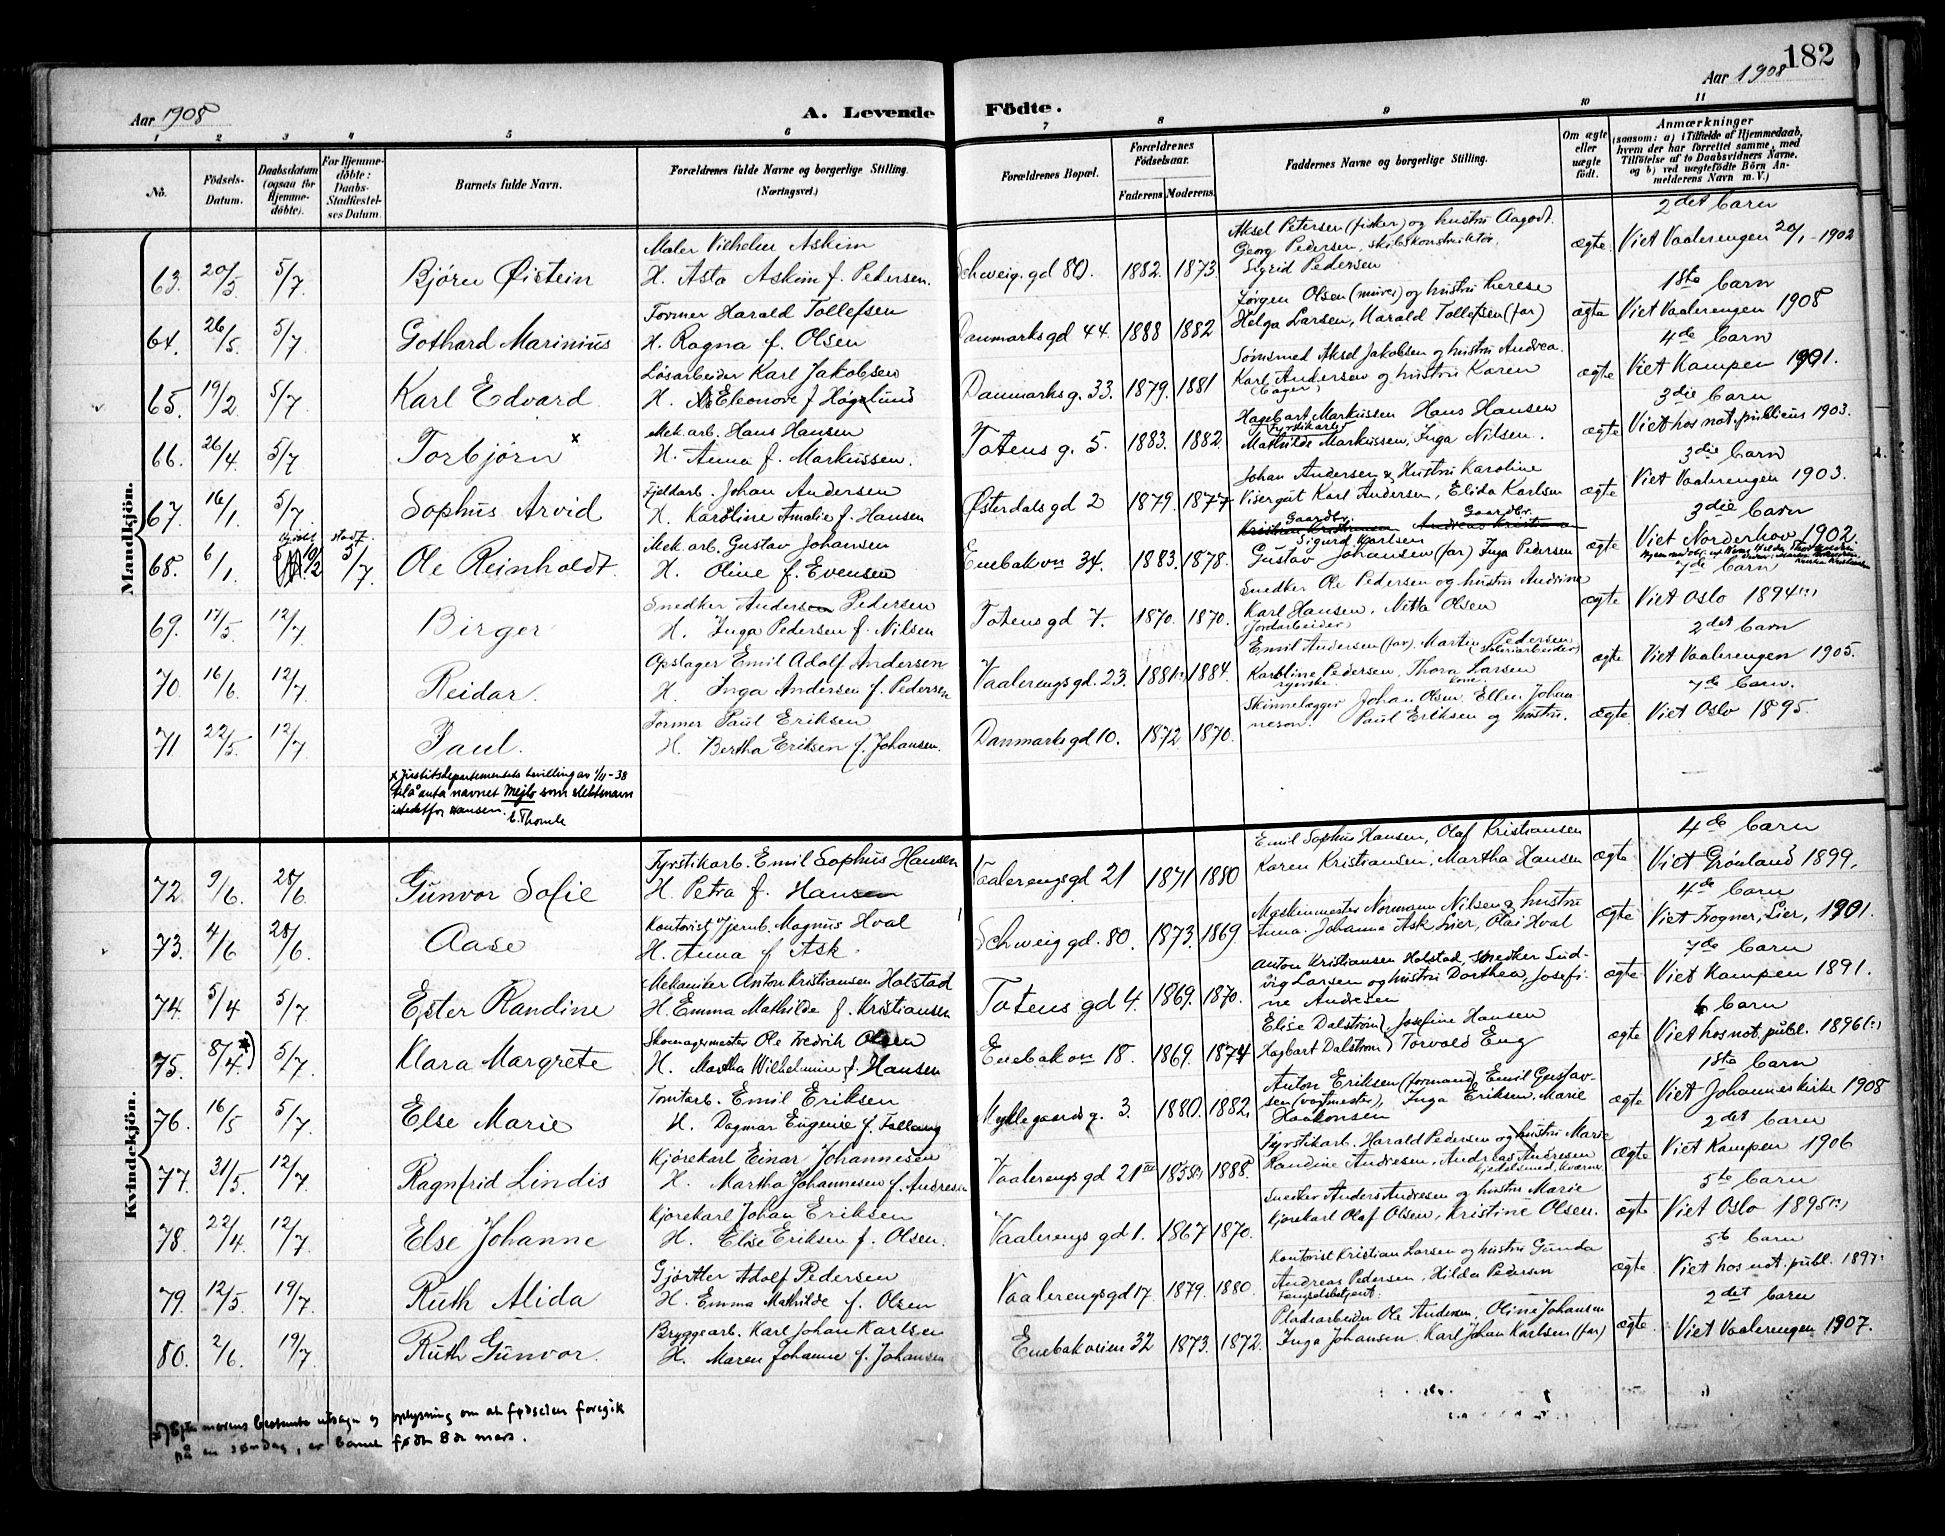 182
Aar 1908
A. Levende
Födte.
Aar 1908
1 2 3 4 5 6 7 8 9 10 11
No.
Födsels-Datum.
Daabsdatum (ogsaa for Hjemme-döbte).
For Hjemme-döbte: Daabs-Stadfæstel-ses Datum.
Barnets fulde Navn.
Forældrenes fulde Navne og borgerlige Stilling. (Næringsvei.)
Forældrenes Bopæl.
Forældrenes Födselsaar.
Faderens Moderens.
Faddernes Navne og borgerlige Stilling.
Om ægte eller uægte födt.
Anmærkninger
(saasom: a) i Tilfælde af Hjemmedaab, hvem der har forrettet samme, med Tilföielse af to Daabsvidners Navne, og b) ved uægtefödte Börn Anmelderens Navn m. V.)
Mandkjön.
63. 20/5 5/7 Bjørn Øistein
Maler Vilhelm Askim
H. Asta Askim f. Pedersen.
Schweig. gd 80. 1882. 1873.
Aksel Petersen (fisker) og hustru Aagodt.
Georg Pedersen, skibskonstruktør.
Sigrid Pedersen
ægte.
2det barn
Viet Vaalerengen 20/1-1902
64. 26/5. 5/7. Gothard Marinius
Former Harald Tollefsen
H. Ragna f. Olsen
Danmarks gd 44. 1888 1882
Jørgen Olsen (murer) og hustru Therese
Helga Larsen, Harald Tollefsen (far)
ægte
1ste barn
Viet Vaalerengen 1908
65. 19/2. 5/7. Karl Edvard.
Løsarbeider Karl Jakobsen
H. Eleonore f Høgelund
Danmarks g. 33. 1879. 1881
Sømsmed Aksel Jakobsen og hustru Andrea.
Karl Andersen og hustru Karen
(bager)
ægte
4de barn
Viet Kampen 1901.
66. 26/4. 5/7 Torbjørn x
Mek. arb. Hans Hansen
H. Anna f. Markussen.
Totens g. 5. 1883. 1882.
Hagebart Markussen Hans Hansen
Fyrstikarb.
Mathilde Markussen, Inga Nilsen.
ægte
3die barn
Viet hos not. publicus 1903.
67. 16/1. 5/7. Sophus Arvid
Fjeldarb. Johan Andersen
H. Karoline Amalie f. Hansen
Østerdals gd 2 1879. 1877
Johan Andersen & Hustru Karoline
Visergut Karl Andersen, Elida Karlsen
ægte
3die barn
Viet Vaalerengen 1903.
68. 6/1. 9/2 stadf. 5/7. Ole Reinholdt.
Mek. arb. Gustav Johansen
H. Oline f. Evensen
Enebakvn 34. 1883. 1878.
Gaardbr. Gaardbr.
Kristian Kristiansen Andreas Kristiansen
Sigurd Karlsen
Gustav Johansen (far) Inga Pedersen
ægte
3die barn
Viet Norderhov 1902.
69. 17/5. 12/7 Birger
Snedker Anders Pedersen
H. Inga Pedersen f. Nilsen
Totens gd 7. 1870. 1870.
Snedker Ole Pedersen og hustru Andrine
Karl Hansen, Nitta Olsen
(Jordarbeider)
ægte
7de barn
Viet Oslo 1894
70. 16/6. 12/7 Reidar.
Opslager Emil Adolf Andersen
H. Inga Andersen f. Pedersen
Vaalerengs gd. 23. 1881 1884.
Emil Andersen (far), Martin Pedersen
Karoline Pedersen, Thora Larsen
ægte
2det barn
Viet Vaalerengen 1905.
71 22/5. 12/7 Paul.
Former Paul Eriksen
H. Bertha Eriksen f. Johansen.
Danmarks gd 10. 1872 1870.
Skinnelægger Johan Olsen Ellen Johan
nesen. Paul Eriksen og hustru.
ægte
7de barn.
Viet Oslo 1895
x Justitsdepartementets bevilling av 1/11-38
til å anta navnet Mejlo som slektsnavn
istedetfor Hansen.
E. Thomle
Kvindekjön.
72. 9/6. 28/6 Gunvor Sofie
Fyrstikarb. Emil Sophus Hansen
H. Petra f. Hansen
Vaalerengs gd 21 1871 1880
Emil Sophus Hansen, Olaf Kristiansen
Karen Kristiansen, Martha Hansen
ægte
4de barn
Viet Grønland 1899.
73. 4/6 28/6. Aase
Kontorist v/jernb. Magnus Hval
H. Anna f Ask.
Schweig gd. 80. 1873. 1869
Maskinmester Normann Nilsen & hustru
Anna. Johanna Ask Lier, Olai Hval
ægte
4de barn
Viet Frogner, Lier, 1901.
74. 5/4 5/7 Ester Randine
Mekaniker Anton Kristiansen Holstad
H. Emma Mathilde f. Kristiansen
Totens gd 4. 1869. 1870.
Anton Kristiansen Holstad, Snedker Lud-
vig Larsen og hustru Dorthea, Josefi-
ne Andresen
ægte
7de barn
Viet Kampen 1891.
75. 8/4. *) 5/7. Klara Margrete
Skomagermester Ole Fredrik Olsen
H. Martha Wilhelmine f. Hansen
Enebakvn 18. 1869. 1874
Elise Dalstrøm, Josefine Hansen
Hagbart Dalstrøm, Torvald Eng
ægte
6 barn
Viet hos not. publ. 1896
76. 16/5 5/7. Else Marie
Tomtarb. Emil Eriksen
H. Dagmar Eugenie f. Fallang
Nyklegaards g. 3. 1880. 1882.
Anton Eriksen (formand) Emil Gustav-
sen (vagtmester), Inga Eriksen, Marie
Haakonsen
ægte
1ste barn
Viet Johanneskirke 1908
77. 31/5. 12/7. Ragnfrid Lindis
Kjørekarl Einar Johannesen
H. Martha Johannesen f. Andresen
Vaalerengs gd 21 1888.
Fyrstikarb. Harald Pedersen og hustru Marie
Randine Andresen, Andreas Andresen
ægte
2det barn
Viet Kampen 1906
78. 22/4. 12/7. Else Johanne
Kjørekarl Johan Eriksen
H. Elise Eriksen f. Olsen.
Vaalerengs gd 1. 1867 1870.
Snedker Anders Andresen og hustru Marie
Kjørekarl Olaf Olsen, Kristine Olsen.
ægte
5te barn
Viet Oslo 1895
79. 12/5. 19/7. Ruth Alida
Gjørtler Adolf Pedersen
H. Emma Mathilde f. Olsen
Vaalerengs gd 17. 1879. 1880.
Kontorist Kristian Larsen og hustru Gunda
Andreas Pedersen, Hilda Pedersen
Fængselsbetjent.
ægte.
5te barn
Viet hos not. publ. 1897
80. 2/6. 19/7 Ruth Gunvor.
Bryggearb. Karl Johan Karlsen
H. Maren Johanne f. Johansen
Enebakveien 32 1873. 1872.
Pladsarbeider Ole Andersen, Oline Johansen
Inga Johansen. Karl Johan Karlsen (far)
ægte.
2det barn
Viet Vaalerengen 1907.
*) Efter morens bestemte utsagn og oplysning om at fødselen foregik
på en søndag, er barnet født 8de mars.